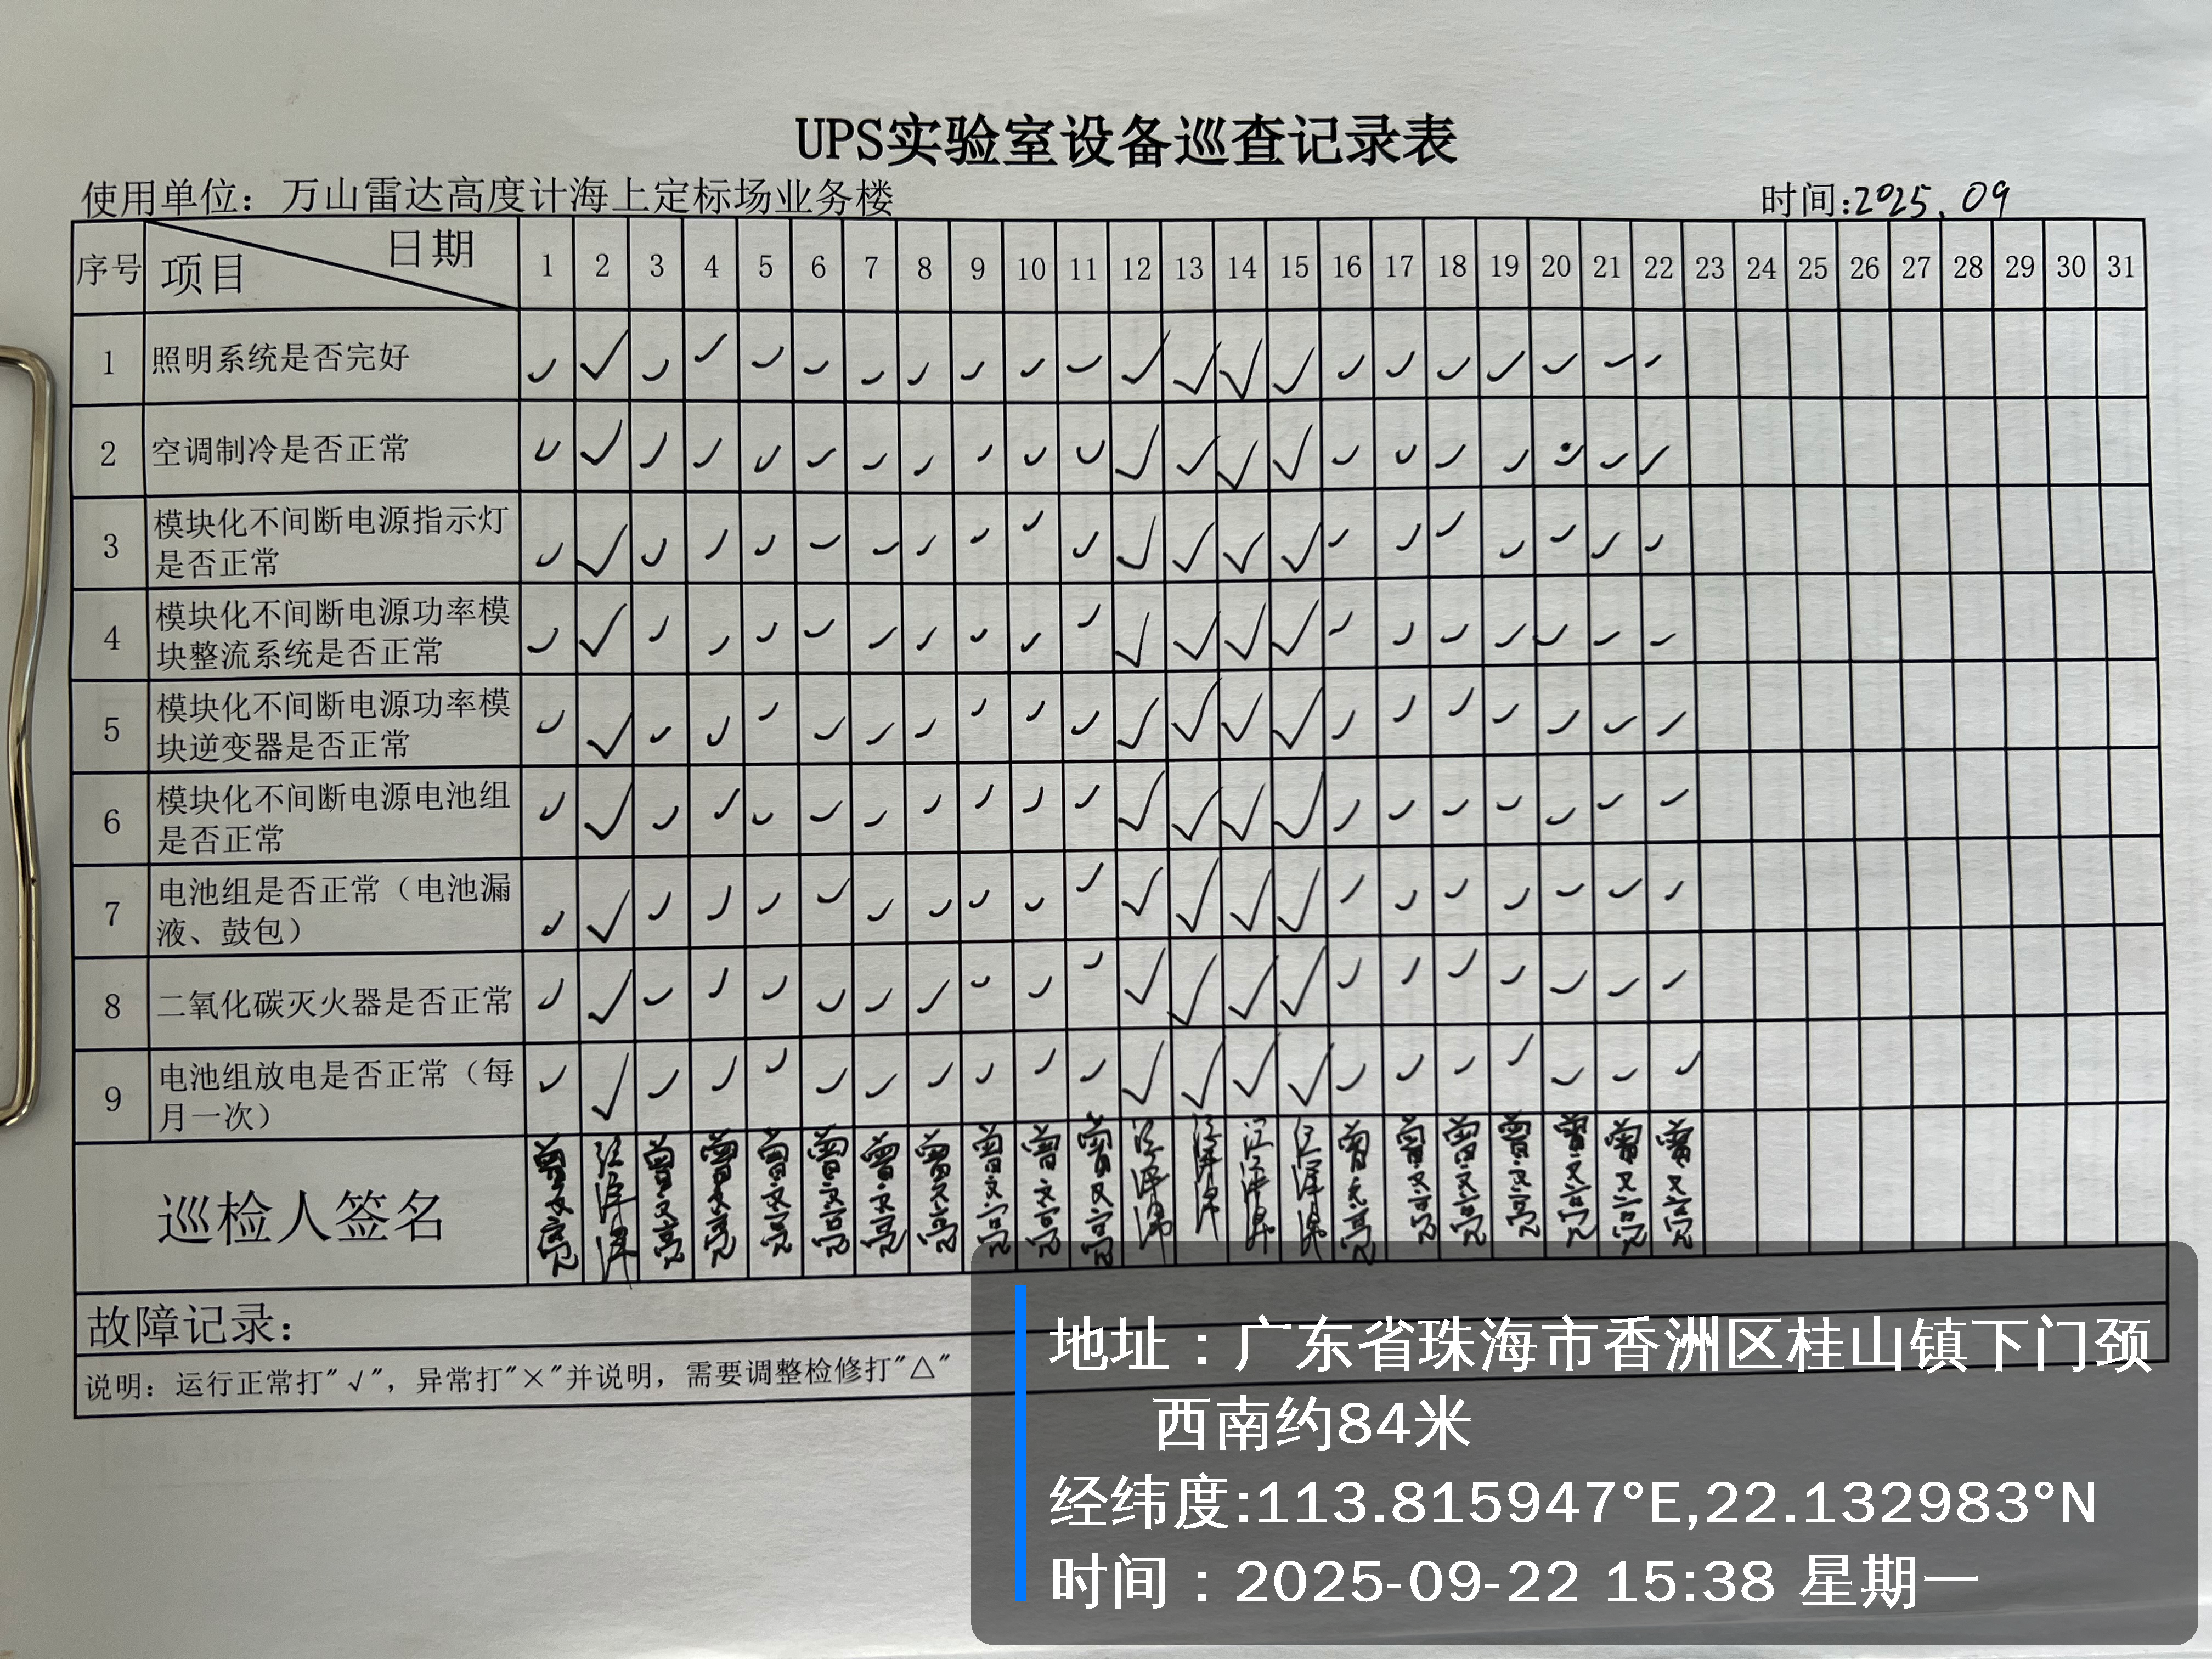 UPS实验室设备巡查记录表
使用单位：万山雷达高度计海上定标场业务楼 时间:2025.09
序号 项目 日期 1 2 3 4 5 6 7 8 9 10 11 12 13 14 15 16 17 18 19 20 21 22 23 24 25 26 27 28 29 30 31
1 照明系统是否完好 ✓ ✓ ✓ ✓ ✓ ✓ ✓ ✓ ✓ ✓ ✓ ✓ ✓ ✓ ✓ ✓ ✓ ✓ ✓ ✓ ✓ ✓
2 空调制冷是否正常 ✓ ✓ ✓ ✓ ✓ ✓ ✓ ✓ ✓ ✓ ✓ ✓ ✓ ✓ ✓ ✓ ✓ ✓ ✓ ✓ ✓ ✓
3 模块化不间断电源指示灯
是否正常 ✓ ✓ ✓ ✓ ✓ ✓ ✓ ✓ ✓ ✓ ✓ ✓ ✓ ✓ ✓ ✓ ✓ ✓ ✓ ✓ ✓ ✓
4 模块化不间断电源功率模
块整流系统是否正常 ✓ ✓ ✓ ✓ ✓ ✓ ✓ ✓ ✓ ✓ ✓ ✓ ✓ ✓ ✓ ✓ ✓ ✓ ✓ ✓ ✓ ✓
5 模块化不间断电源功率模
块逆变器是否正常 ✓ ✓ ✓ ✓ ✓ ✓ ✓ ✓ ✓ ✓ ✓ ✓ ✓ ✓ ✓ ✓ ✓ ✓ ✓ ✓ ✓ ✓
6 模块化不间断电源电池组
是否正常 ✓ ✓ ✓ ✓ ✓ ✓ ✓ ✓ ✓ ✓ ✓ ✓ ✓ ✓ ✓ ✓ ✓ ✓ ✓ ✓ ✓ ✓
7 电池组是否正常（电池漏
液、鼓包） ✓ ✓ ✓ ✓ ✓ ✓ ✓ ✓ ✓ ✓ ✓ ✓ ✓ ✓ ✓ ✓ ✓ ✓ ✓ ✓ ✓ ✓
8 二氧化碳灭火器是否正常 ✓ ✓ ✓ ✓ ✓ ✓ ✓ ✓ ✓ ✓ ✓ ✓ ✓ ✓ ✓ ✓ ✓ ✓ ✓ ✓ ✓ ✓
9 电池组放电是否正常（每
月一次） ✓ ✓ ✓ ✓ ✓ ✓ ✓ ✓ ✓ ✓ ✓ ✓ ✓ ✓ ✓ ✓ ✓ ✓ ✓ ✓ ✓ ✓
巡检人签名 曾文亮 曾文亮 曾文亮 曾文亮 曾文亮 曾文亮 曾文亮 曾文亮 曾文亮 曾文亮 曾文亮 曾文亮 曾文亮 曾文亮 曾文亮 曾文亮 曾文亮
故障记录：
说明：运行正常打"√"，异常打"×"并说明，需要调整检修打"△"
地址：广东省珠海市香洲区桂山镇下门颈
西南约84米
经纬度:113.815947°E,22.132983°N
时间：2025-09-22 15:38 星期一